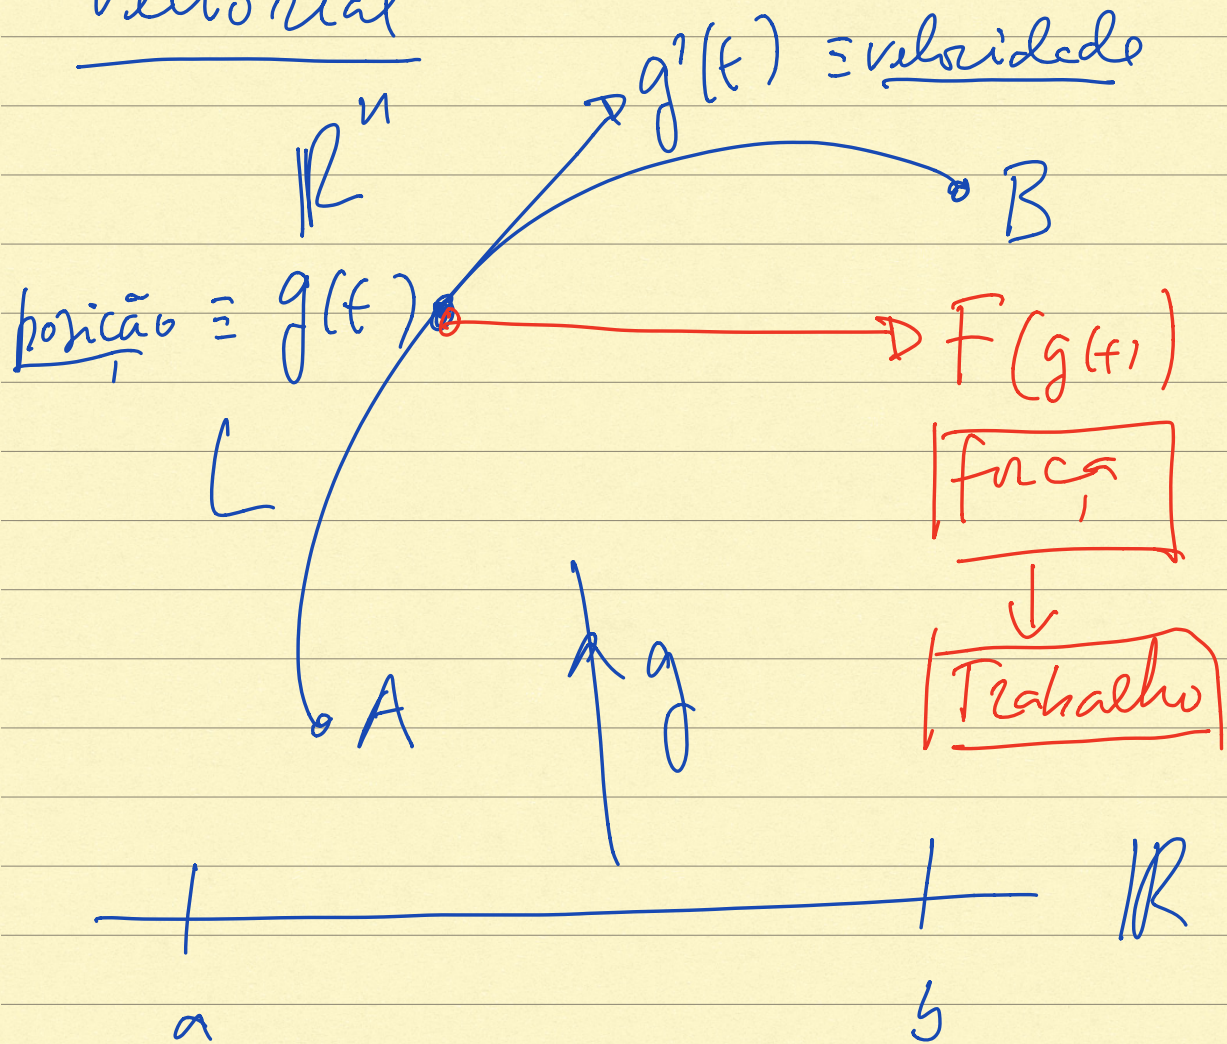 vectorial
g'(t) ≡ velocidade
ℝⁿ
B
posição ≡ g(t)
F(g(t))
L
força
g
Trabalho
A
ℝ
a
b